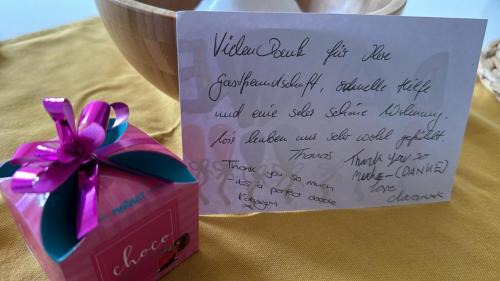 Vielen Dank für Ihre
Gastfreundschaft, schnelle Hilfe
und eine sehr schöne Wohnung.
Wir haben uns sehr wohl gefühlt.
Thomas
Thank you so
much - (DANKE)
love
Thank you so much
its a perfect
choco